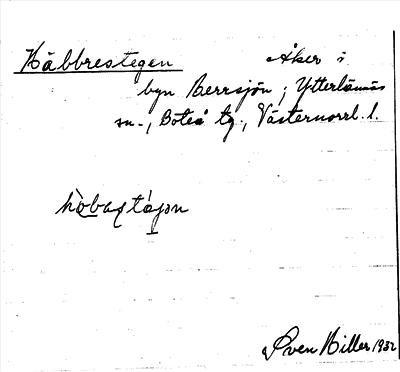 Häbbrestegen Åker i
byn Berrsjön, Ytterlännäs
sn., Boteå tg., Västernorrl. l.
Sven Hiller 1932